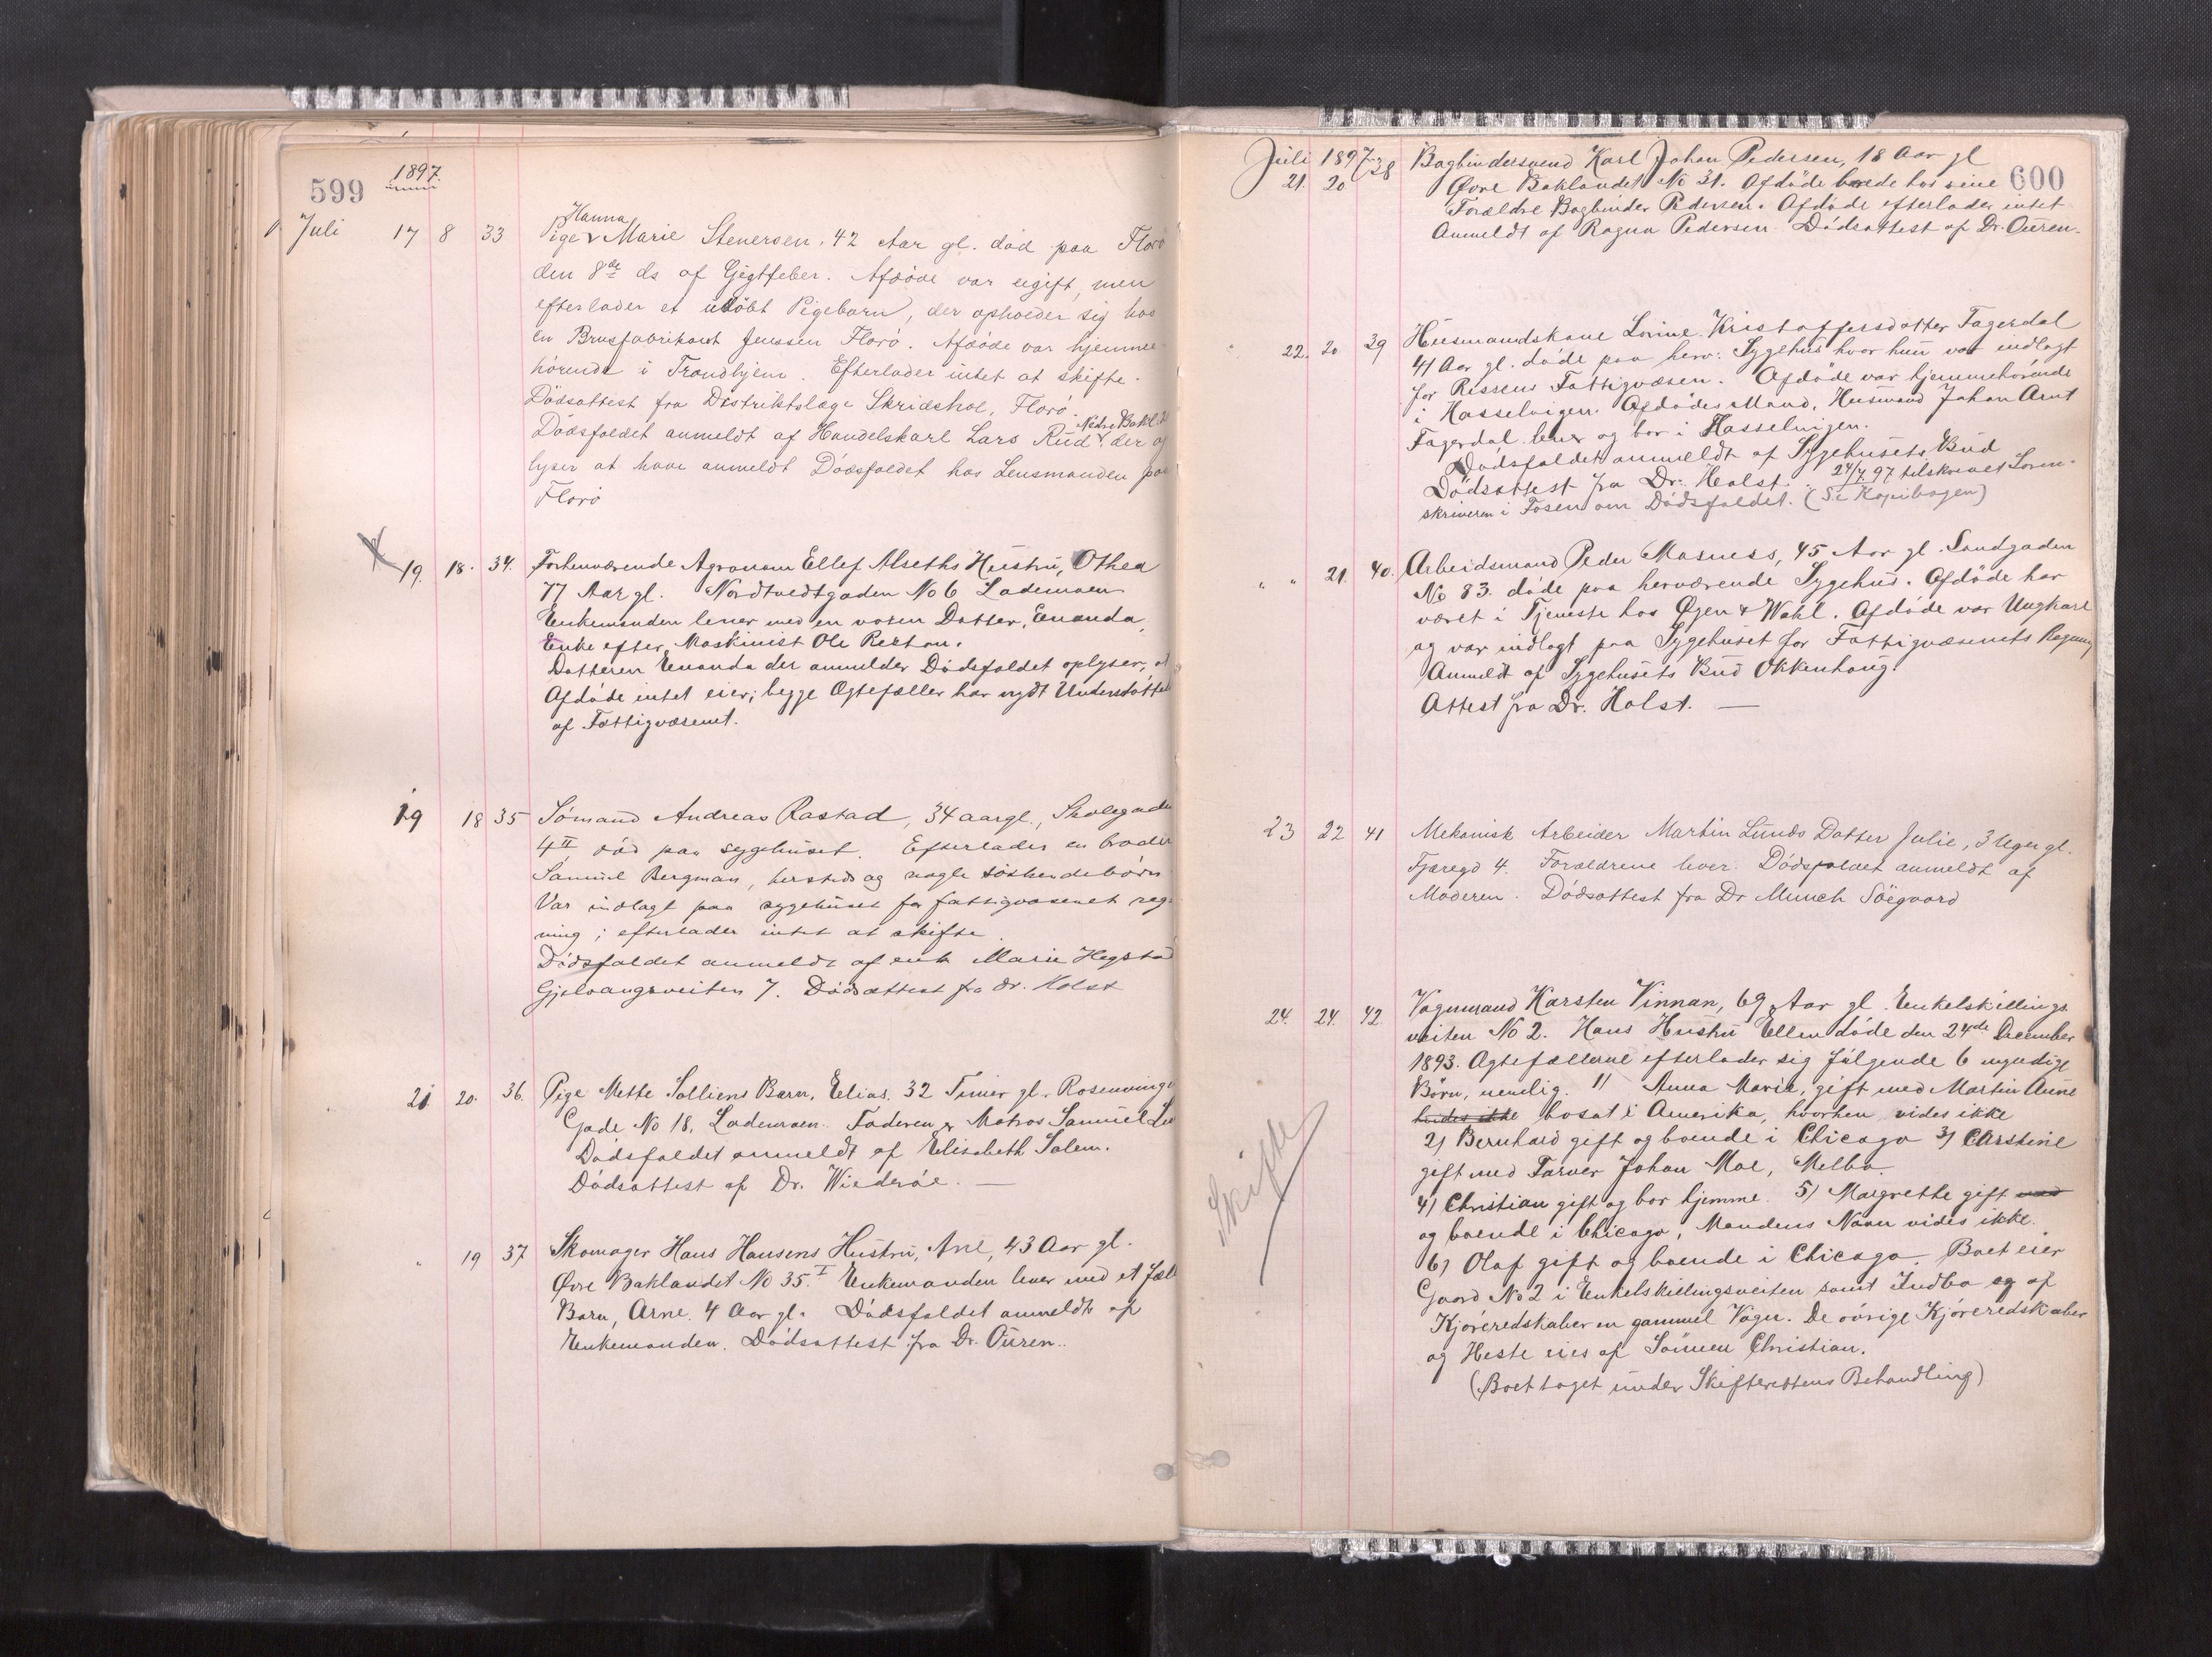 599
1897.
Juli 17 8 33 Pige Hanna Marie Stenersen, 42 Aar gl. död paa Florö
den 8de ds af Gigtfeber. Afdöde var ugift, men
efterlader et udöbt Pigebarn, der opholder sig hos
en Brusfabrikant Jenssen Florö. Afdöde var hjemme
hörende i Trondhjem. Efterlader intet at skifte.
Dödsattest fra Distriktslæge Skridshol, Florö.
Dödsfaldet anmeldt af Handelskarl Lars Rud Nedre Bakl. der op
lyser at have anmeldt Dödsfaldet hos Lensmanden paa
Florö
19. 18. 34. Forhenværende Agronom Ellef Alseths Hustru, Othea
77 Aar gl. Nordtvedtgaden No 6 Lademoen
Enkemanden lever med en voxen Datter, Enanda,
Enke efter Maskinist Ole Restan.
Datteren Enanda der anmelder Dödsfaldet oplyser, at
Afdöde intet eier; begge Ægtefæller har nydt Understöttel
af Fattigvæsenet.
19 18 35 Sömand Andreas Rastad, 34 aar gl., Skolegade
4 II död paa sygehuset. Efterlader en broder
Samuel Bergman, hersteds og nogle söskendebörn
Var indlagt paa sygehuset for fattigvæsenets reg
ning; efterlader intet at skifte
Dödsfaldet anmeldt af enke Marie Hegstad
Gjelvangsveiten 7. Dödsattest fra dr. Holst
21 20. 36. Pige Mette Solliens Barn, Elias, 32 Timer gl. Rosenvinge
Gade No 18, Lademoen. Faderen er Matros Samuel
Dödsfaldet anmeldt af Elisabeth Salem.
Dödsattest af Dr. Wiederöe. —
" 19 37 Skomager Hans Hansens Hustru, Ane, 43 Aar gl.
Övre Baklandet No 35. I Enkemanden lever med et fæll
Barn, Arne, 4 Aar gl. Dödsfaldet anmeldt af
Enkemanden. Dödsattest fra Dr. Ouren.
600
Juli 1897
21. 20 38 Bogbindersvend Karl Johan Pedersen, 18 Aar gl
Övre Baklandet No 31. Afdöde boede hos sine
Forældre Bogbinder Pedersen. Afdöde efterlader intet
Anmeldt af Ragna Pedersen. Dödsattest af Dr. Ouren.
22. 20 39 Husmandskone Lorine Kristoffersdatter Fagerdal
41 Aar gl. döde paa herv. Sygehus hvor hun var indlagt
for Rissens Fattigvæsen. Afdöde var hjemmehörende
i Hasselvigen. Afdödes Mand, Husmand Johan Arnt
Fagerdal lever og bor i Hasselvigen.
Dödsfaldet anmeldt af Sygehusets Bud
Dödsattest fra Dr. Holst. 24/7 97 tilskrevet Soren-
skriveren i Fosen om Dödsfaldet. (Se Kopibogen)
" " 21. 40. Arbeidsmand Peder Masness, 45 Aar gl. Sandgaden
No 83. döde paa herværende Sygehus. Afdöde har
været i Tjeneste hos Öyen & Wahl. Afdöde var Ungkarl
og var indlagt paa Sygehuset for Fattigvæsenets Regning
Anmeldt af Sygehusets Bud Okkenhaug.
Attest fra Dr. Holst. —
23 22 41 Mekanisk Arbeider Martin Lunds Datter Julie, 3 Uger gl.
Fjæregd 4. Forældrene lever. Dödsfaldet anmeldt af
Moderen. Dödsattest fra Dr Munch Söegaard
24. 24. 42. Vognmand Karsten Vinnan, 69 Aar gl. Enkelskillings
veiten No 2. Hans Hustru Ellen döde den 24de December
1893. Ægtefællerne efterlader sig fölgende 6 myndige
Börn, nemlig. 1) Anna Marie, gift med Martin Aune
bosat i Amerika, hvorhen vides ikke
2) Bernhard gift og boende i Chicago 3) Carstine
gift med Farver Johan Moe, Melbo.
4) Christian gift og bor hjemme. 5) Margrethe gift med
og boende i Chicago, Mandens Navn vides ikke.
6) Olaf gift og boende i Chicago. Boet eier
Gaard No 2 i Enkelskillingsveiten samt Indbo og af
Kjöreredskaber en gammel Vogn. De övrige Kjöreredskaber
og Heste eies af Sönnen Christian.
(Boet taget under Skifterettens Behandling)
Skifte